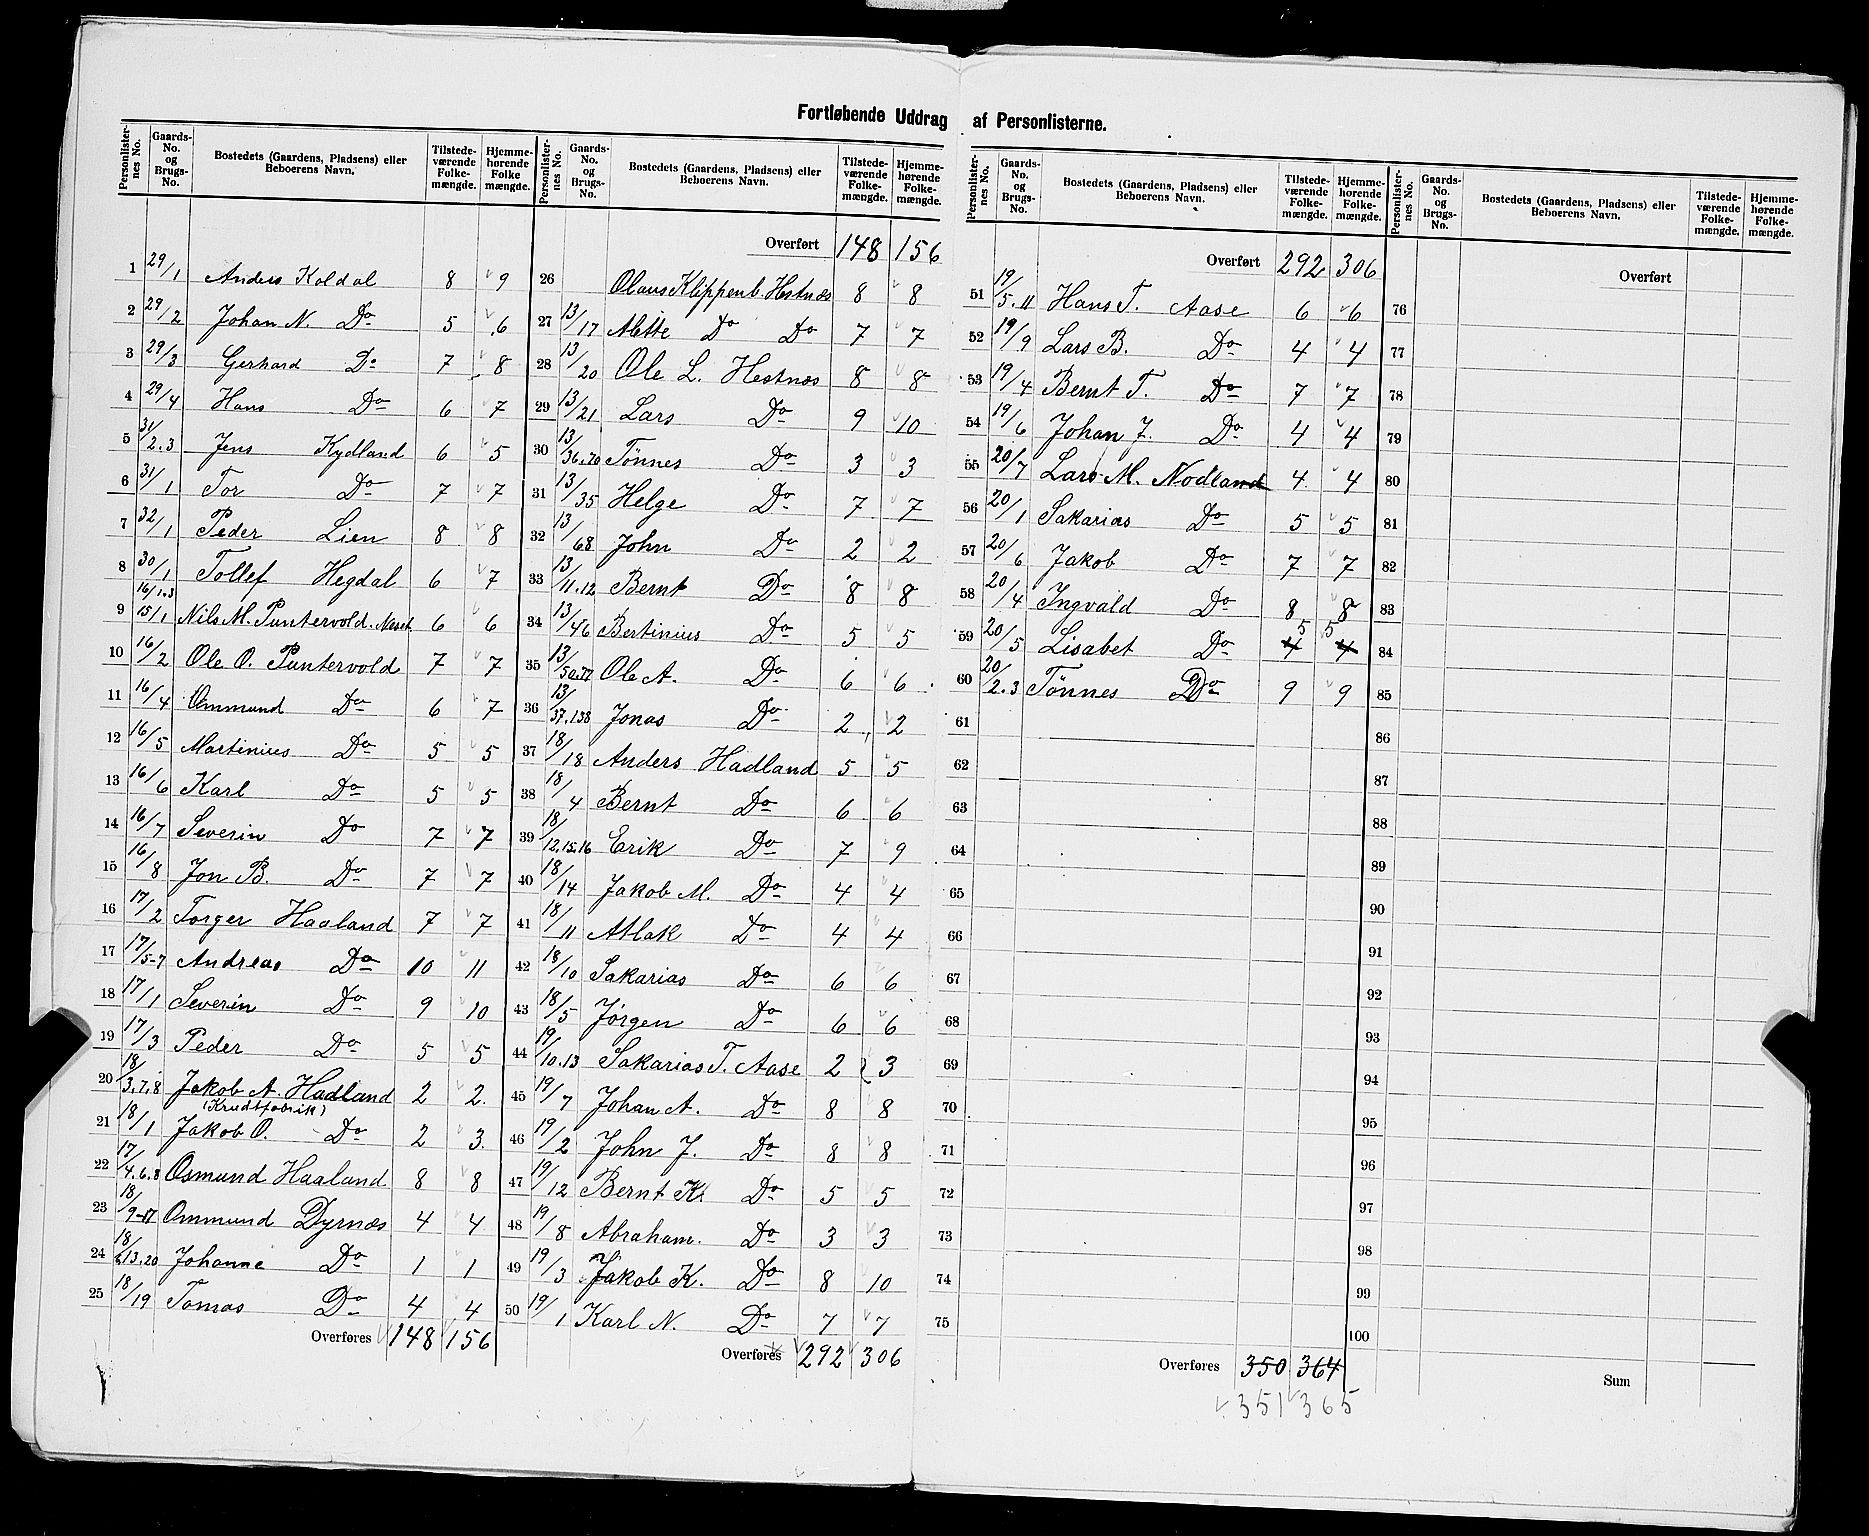 Fortløbende Uddrag af Personlisterne.
Personlister-nes No. | Gaards-No. og Brugs-No. | Bostedets (Gaardens, Pladsens) eller Beboerens Navn. | Tilstede-værende Folke-mængde. | Hjemme-hørende Folke mængde.
1 29/1 Anders Koldal 8 9
2 29/2 Johan N. Do 5 6
3 29/3 Gerhard Do 7 8
4 29/4 Hans Do 6 7
5 31/2.3 Jens Kydland 6 5
6 31/1 Tor Do 7 7
7 32/1 Peder Lien 8 8
8 30/1 Tollef Hegdal 6 7
9 16/1.3 15/1 Nils M. Puntervold. Neset 6 6
10 16/2 Ole O. Puntervold 7 7
11 16/4 Ommund Do 6 7
12 16/5 Martinius Do 5 5
13 16/6 Karl Do 5 5
14 16/7 Severin Do 7 7
15 16/8 Jon B. Do 7 7
16 17/2 Torger Haaland 7 7
17 17/5-7 Andreas Do 10 11
18 17/1 Severin Do 9 10
19 17/3 Peder Do 5 5
20 18/3.7.8 Jakob A. Hadland 2 2
(Krudtfabrik)
21 18/1 Jakob O. Do 2 3
22 17/4.6.8 Osmund Haaland 8 8
23 18/9-17 Ommund Dyrnæs 4 4
24 18/2.13.20 Johanne Do 1 1
25 18/19 Tomas Do 4 4
Overføres 148 156
Personlister-nes No. | Gaards-No. og Brugs-No. | Bostedets (Gaardens, Pladsens) eller Beboerens Navn. | Tilstede-værende Folke-mængde. | Hjemme-hørende Folke-mængde.
Overført 148 156
26 Olaus Klippenb. Hestnæs 8 8
27 13/17 Mette Do Do 7 7
28 13/20 Ole L. Hestnæs 8 8
29 13/21 Lars Do 9 10
30 13/36.70 Tönnes Do 3 3
31 13/35 Helge Do 7 7
32 13/68 John Do 2 2
33 13/11.12 Bernt Do 8 8
34 13/46 Bertinius Do 5 5
35 13/50.77 Ole A. Do 6 6
36 13/37.138 Jonas Do 2 2
37 18/18 Anders Hadland 5 5
38 18/4 Bernt Do 6 6
39 18/12.15.16 Erik Do 7 9
40 18/14 Jakob M. Do 4 4
41 18/11 Atlak Do 4 4
42 18/10 Sakarias Do 6 6
43 18/5 Jørgen Do 6 6
44 19/10.13 Sakarias T. Aase 2 3
45 19/7 Johan A. Do 8 8
46 19/2 John J. Do 8 8
47 19/12 Bernt K. Do 5 5
48 19/8 Abraham. Do 3 3
49 19/3 Jakob K. Do 8 10
50 19/1 Karl N. Do 7 7
Overføres 292 306
Personlister-nes No. | Gaards-No. og Brugs-No. | Bostedets (Gaardens, Pladsens) eller Beboerens Navn. | Tilstede-værende Folke-mængde. | Hjemme-hørende Folke-mængde.
Overført 292 306
51 19/5.11 Hans T. Aase 6 6
52 19/9 Lars B. Do 4 4
53 19/4 Bernt T. Do 7 7
54 19/6 Johan J. Do 4 4
55 20/7 Lars M. Nodland 4 4
56 20/1 Sakarias Do 5 5
57 20/6 Jakob Do 7 7
58 20/4 Ingvald Do 8 8
59 20/5 Lisabet Do 4 5 5 4
60 20/2.3 Tönnes Do 9 9
61
62
63
64
65
66
67
68
69
70
71
72
73
74
75
Overføres 350 364
351 365
Personlister-nes No. | Gaards-No. og Brugs-No. | Bostedets (Gaardens, Pladsens) eller Beboerens Navn. | Tilstede-værende Folke-mængde. | Hjemme-hørende Folke-mængde.
Overført
76
77
78
79
80
81
82
83
84
85
86
87
88
89
90
91
92
93
94
95
96
97
98
99
100
Sum